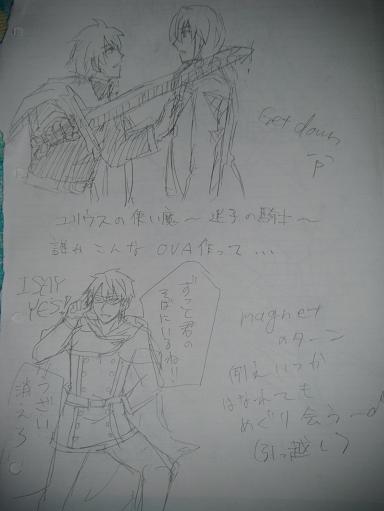 Get down
ユリウスの使い魔〜迷子の騎士〜
誰かこんなOVA作って...
I SAY
YES!
ずっと君の
そばにいるね!!
うざい
消えろ
magnet
のターン
例えいつか
はなれても
めぐり会う〜♪
(引っ越し)